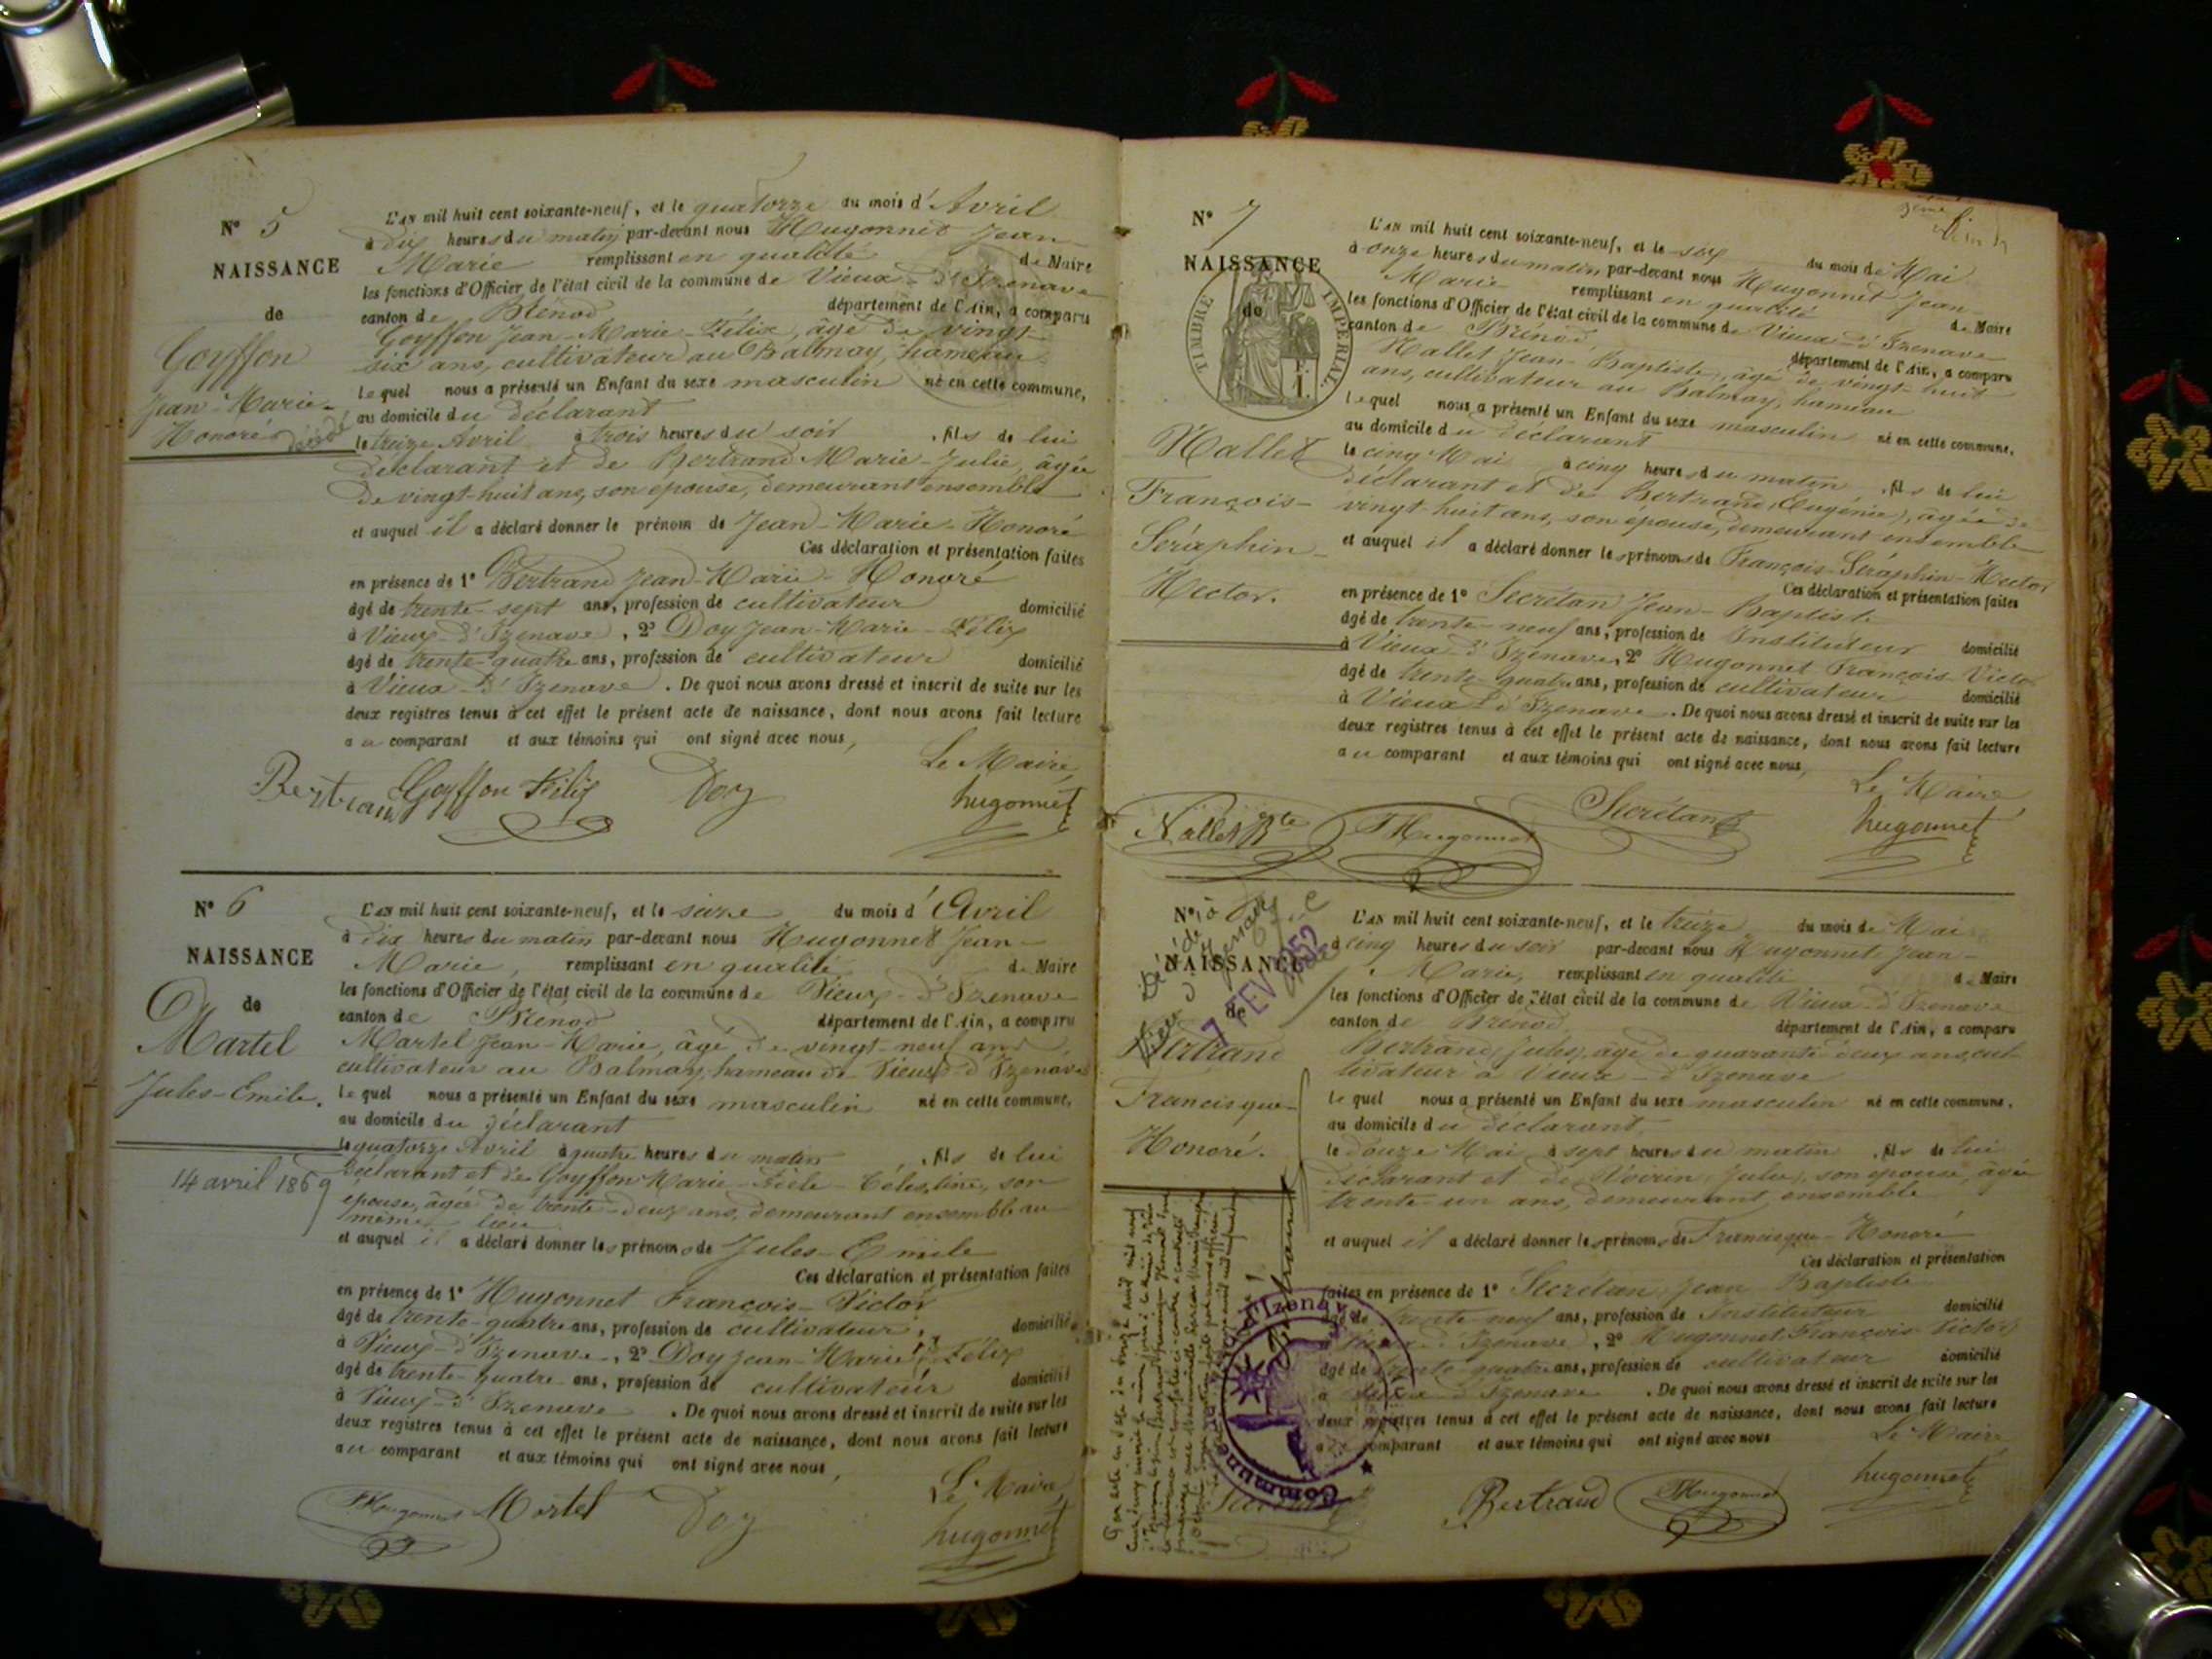 N° 5
NAISSANCE
de
Goyffon
Jean-Marie-
Honoré
décédé
L'AN mil huit cent soixante-neuf, et le quatorze du mois d'Avril
à dix heures du matin par-devant nous Hugonnet Jean-
Marie remplissant en qualité de Maire
les fonctions d'Officier de l'état civil de la commune de Vieux-d'Izenave
canton de Brénod département de l'Ain, a comparu
Goyffon Jean-Marie-Félix, âgé de vingt-
six ans, cultivateur au Balmay, hameau
lequel nous a présenté un Enfant du sexe masculin né en cette commune,
au domicile du déclarant
le treize Avril à trois heures du soir, fils de lui
déclarant et de Bertrand Marie-Julie, âgée
de vingt-huit ans, son épouse, demeurant ensemble
et auquel il a déclaré donner le prénom de Jean-Marie-Honoré
Ces déclaration et présentation faites
en présence de 1° Bertrand Jean-Marie-Honoré
âgé de trente-sept ans, profession de cultivateur domicilié
à Vieux-d'Izenave, 2° Doy Jean-Marie-Félix
âgé de trente-quatre ans, profession de cultivateur domicilié
à Vieux-d'Izenave. De quoi nous avons dressé et inscrit de suite sur les
deux registres tenus à cet effet le présent acte de naissance, dont nous avons fait lecture
au comparant et aux témoins qui ont signé avec nous,
Le Maire,
Bertrand Goyffon Félix Doy hugonnet
N° 6
NAISSANCE
de
Martel
Jules-Emile.
14 avril 1869
L'AN mil huit cent soixante-neuf, et le seize du mois d'Avril
à dix heures du matin par-devant nous Hugonnet Jean-
Marie, remplissant en qualité de Maire
les fonctions d'Officier de l'état civil de la commune de Vieux-d'Izenave
canton de Brénod département de l'Ain, a comparu
Martel Jean-Marie, âgé de vingt-neuf ans,
cultivateur au Balmay, hameau de Vieux d'Izenave
lequel nous a présenté un Enfant du sexe masculin né en cette commune,
au domicile du déclarant
le quatorze Avril à quatre heures du matin, fils de lui
déclarant et de Goyffon Marie-Célestine, son
épouse, âgée de trente-deux ans, demeurant ensemble au
même lieu
et auquel il a déclaré donner les prénoms de Jules-Emile
Ces déclaration et présentation faites
en présence de 1° Hugonnet François-Victor
âgé de trente-quatre ans, profession de cultivateur, domicilié
à Vieux-d'Izenave, 2° Doy Jean-Marie-Félix
âgé de trente-quatre ans, profession de cultivateur domicilié
à Vieux-d'Izenave. De quoi nous avons dressé et inscrit de suite sur les
deux registres tenus à cet effet le présent acte de naissance, dont nous avons fait lecture
au comparant et aux témoins qui ont signé avec nous,
Le Maire,
FHugonnet Martel Doy hugonnet
N° 7
NAISSANCE
de
TIMBRE IMPÉRIAL
Nallet
François-
Séraphin-
Hector.
L'AN mil huit cent soixante-neuf, et le six du mois de Mai
à onze heures du matin, par-devant nous Hugonnet Jean-
Marie remplissant en qualité de Maire
les fonctions d'Officier de l'état civil de la commune de Vieux-d'Izenave
canton de Brénod département de l'Ain, a comparu
Nallet Jean-Baptiste, âgé de vingt-huit
ans, cultivateur au Balmay, hameau
lequel nous a présenté un Enfant du sexe masculin né en cette commune,
au domicile du déclarant
le cinq Mai à cinq heures du matin, fils de lui
déclarant et de Bertrand (Eugénie), âgée de
vingt-huit ans, son épouse, demeurant ensemble
et auquel il a déclaré donner les prénoms de François-Séraphin-Hector
Ces déclaration et présentation faites
en présence de 1° Secrétan Jean-Baptiste
âgé de trente-neuf ans, profession de Instituteur domicilié
à Vieux-d'Izenave, 2° Hugonnet François-Victor
âgé de trente-quatre ans, profession de cultivateur domicilié
à Vieux-d'Izenave. De quoi nous avons dressé et inscrit de suite sur les
deux registres tenus à cet effet le présent acte de naissance, dont nous avons fait lecture
au comparant et aux témoins qui ont signé avec nous,
Le Maire,
Nallet Bte FHugonnet Secrétan hugonnet
N°
NAISSANCE
de
7 FEV 1952
Bertrand
Francisque-
Honoré.
L'AN mil huit cent soixante-neuf, et le treize du mois de Mai
à cinq heures du soir par-devant nous Hugonnet Jean-
Marie, remplissant en qualité de Maire
les fonctions d'Officier de l'état civil de la commune de Vieux-d'Izenave
canton de Brénod département de l'Ain, a comparu
Bertrand (Jules), âgé de quarante-deux ans, cul-
tivateur à Vieux-d'Izenave
lequel nous a présenté un Enfant du sexe masculin né en cette commune,
au domicile du déclarant
le douze Mai à sept heures du matin, fils de lui
déclarant et de Voirin (Julie), son épouse, âgée
trente-un ans, demeurant ensemble
et auquel il a déclaré donner les prénoms de Francisque-Honoré
Ces déclaration et présentation
faites en présence de 1° Secrétan Jean Baptiste
âgé de trente-neuf ans, profession de Instituteur domicilié
à Vieux d'Izenave, 2° Hugonnet François-Victor
âgé de trente-quatre ans, profession de cultivateur domicilié
à Vieux d'Izenave. De quoi nous avons dressé et inscrit de suite sur les
deux registres tenus à cet effet le présent acte de naissance, dont nous avons fait lecture
au comparant et aux témoins qui ont signé avec nous
Le Maire,
Secrétan Bertrand FHugonnet hugonnet